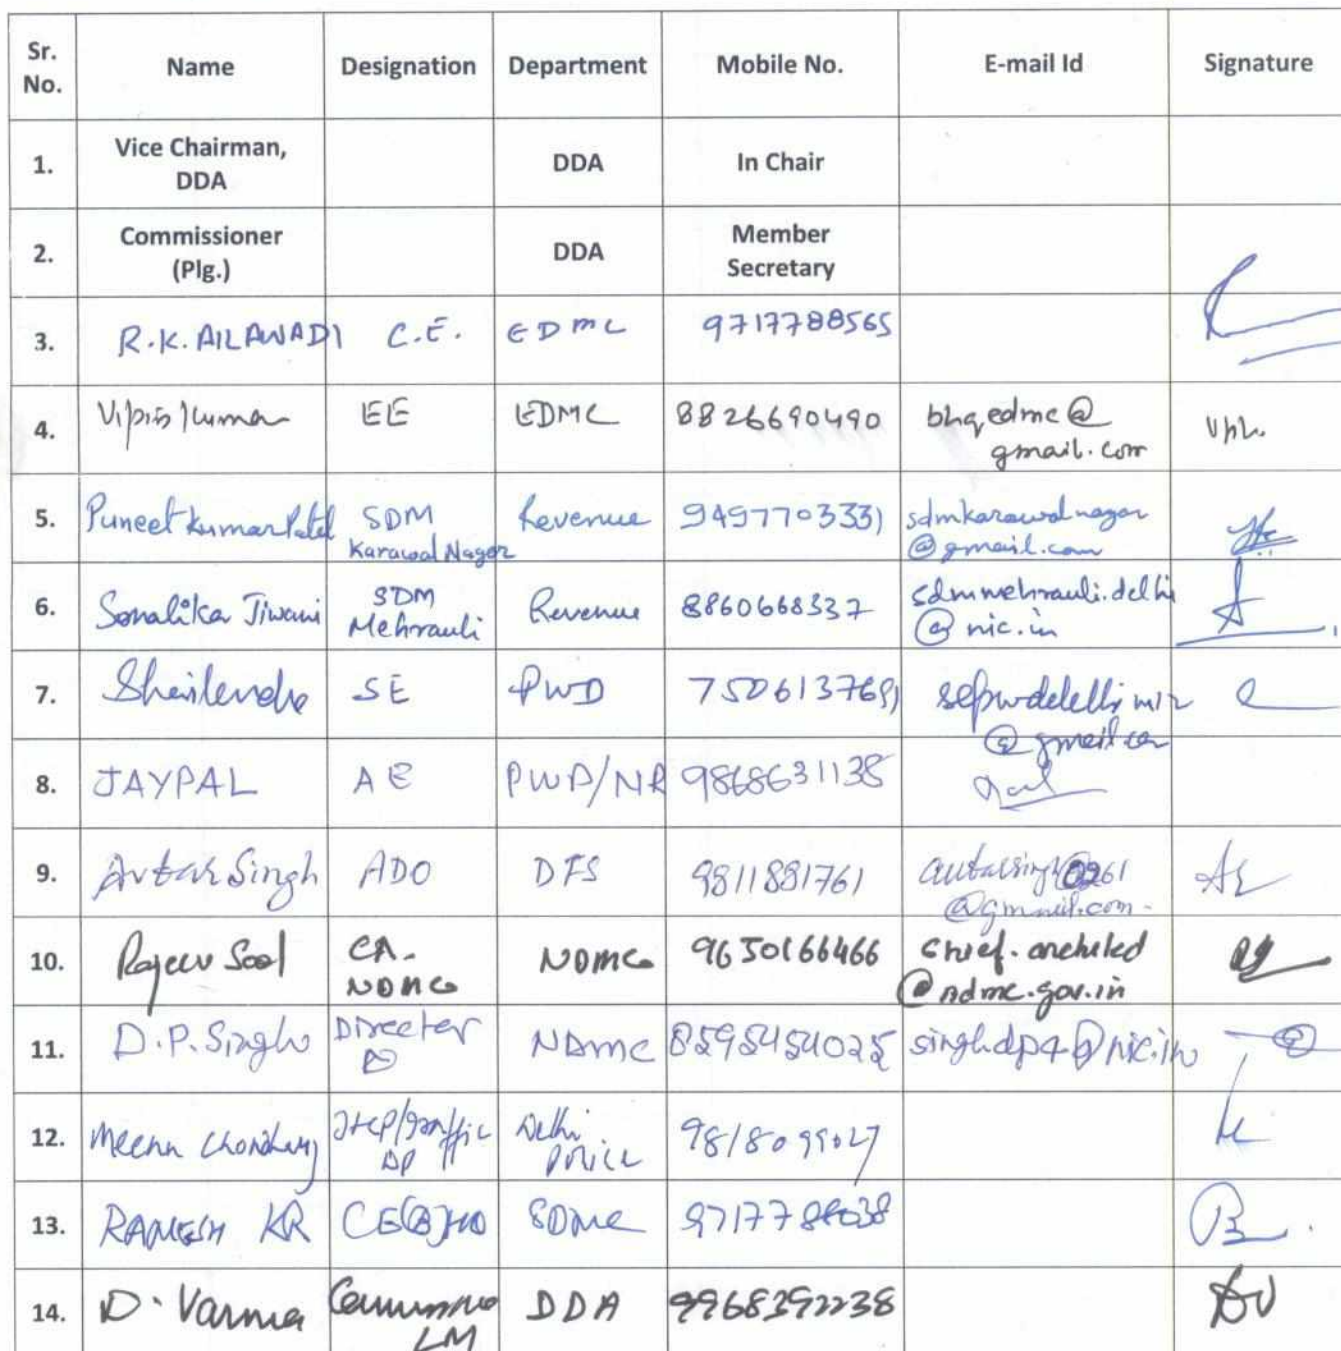 Sr. No. Name Designation Department Mobile No. E-mail Id Signature
1. Vice Chairman, DDA DDA In Chair
2. Commissioner (Plg.) DDA Member Secretary
3. R.K. AILAWADI C.E. EDMC 9717788565
4. Vipin Kumar EE EDMC 8826690490 bhqedmc@
gmail.com
5. Puneet Kumar Patel SDM Revenue 9497703331 sdmkarawalnagar
Karawal Nagar @gmail.com
6. Sonalika Jiwani SDM Revenue 8860668337 sdmmehrauli.delhi
Mehrauli @nic.in
7. Shailendra SE PWD 7506137691
@gmail.com
8. JAYPAL AE PWD/NR 9868631138
9. Avtar Singh ADO DFS 9811881761 avtarsingh0261
@gmail.com
10. Rajeev Sood CA. NDMC 9650166466 chief.architect
NDMC @ndmc.gov.in
11. D.P. Singh Director NDMC 8595454025 singh.dp4@nic.in
12. Meenu Choudhary Delhi
DP Police
13. RAMESH KR CE(B)HQ SDMC
14. D. Varma DDA 9968392238
LM